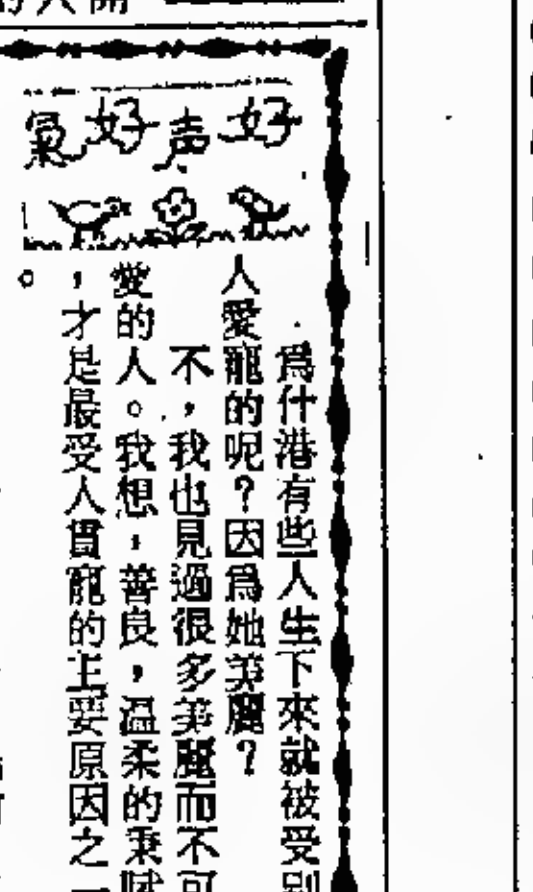 好声好氣
爲什港有些人生下來就被受別
人愛寵的呢？因爲她美麗？
不，我也見過很多美麗而不可
愛的人。我想，善良，温柔的秉賦
，才是最受人貫寵的主要原因之一
。